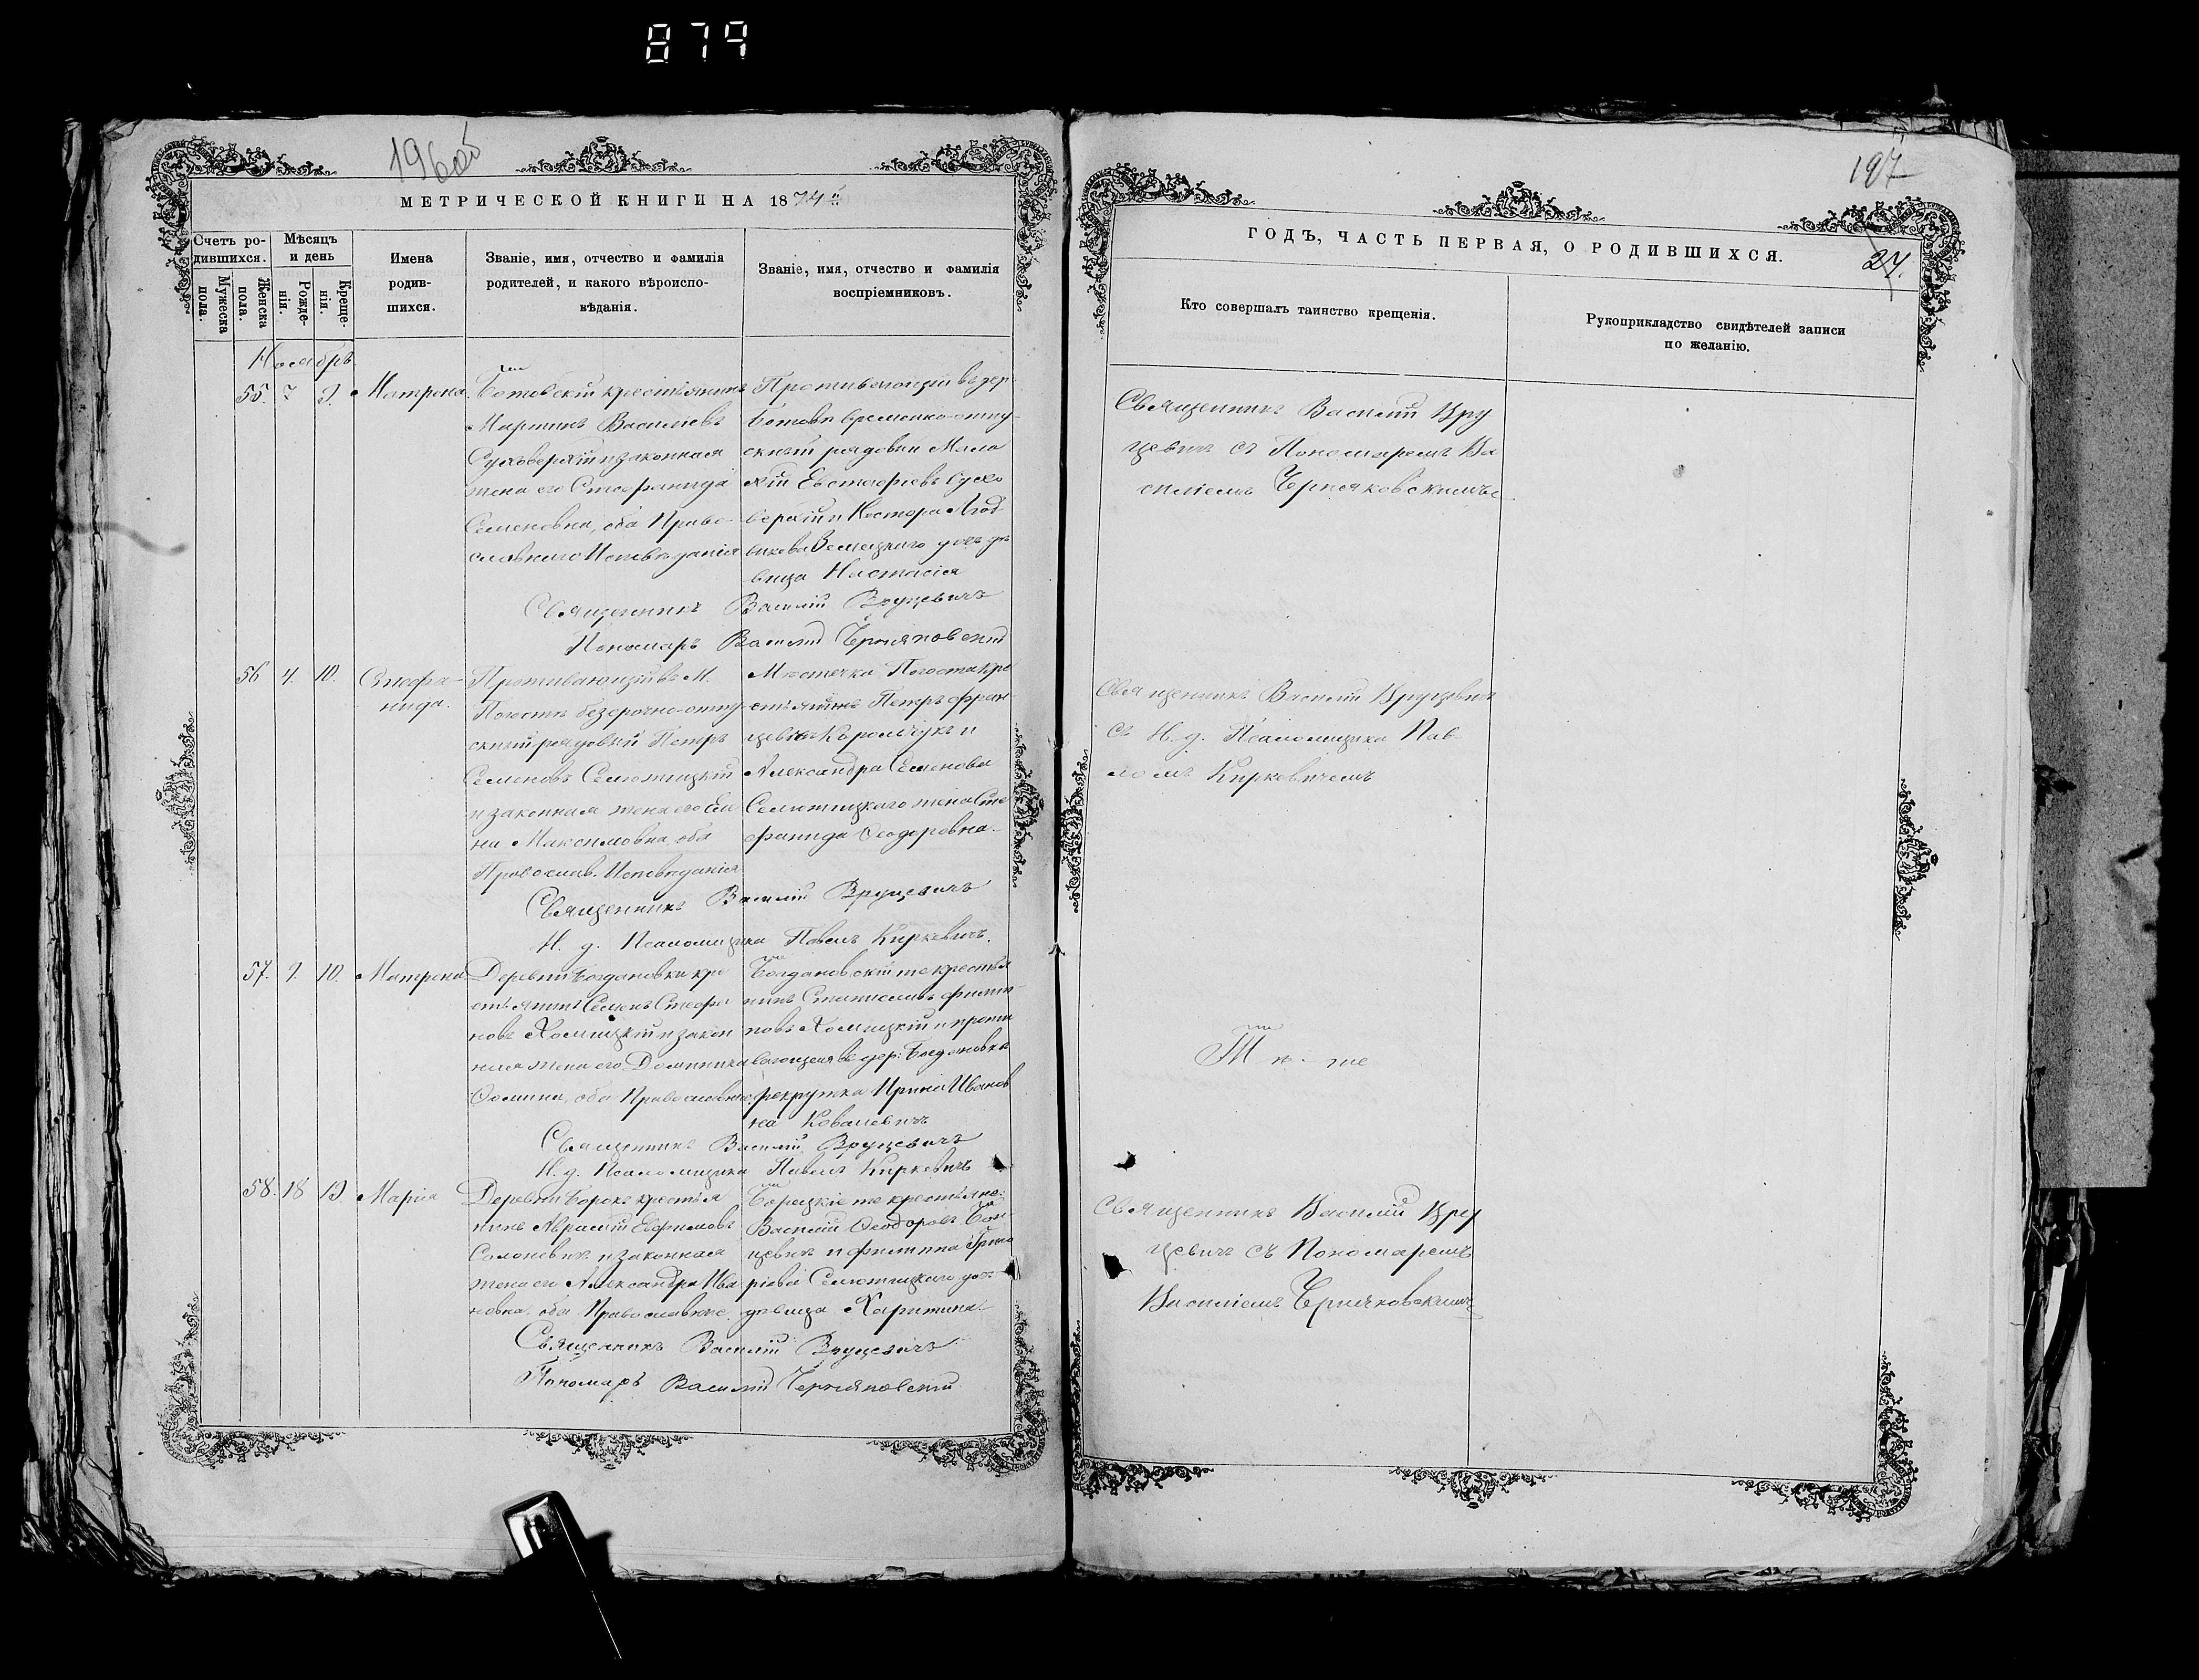 879
196об
МЕТРИЧЕСКОЙ КНИГИ НА 1874й
Счетъ ро-
дившихся.
Мужеска
пола.
Женска
пола.
Мѣсяцъ
и день
Рожде-
нія.
Креще-
нія.
Имена
родив-
шихся.
Званіе, имя, отчество и фамилія
родителей, и какого вѣроиспо-
вѣданія.
Званіе, имя, отчество и фамилія
воспріемниковъ.
Ноябрь
55. 7 9. Матрена.
Ботовскій крестьянинъ
Мартинъ Василіевъ
Суховерхій и законная
жена его Стефанида
Семеновна, оба Право-
славнаго Исповѣданія
Проживающій въ дер.
Ботовѣ временно-отпу-
скный рядовый
Евстафіевъ Сухо
верхій и Нестора
дѣ
вица Настасія
Священникъ Василій Вруцевичъ
Пономарь Василій Черняковскій
56 4. 10. Стефа-
нида.
Проживающій въ М.
Погостѣ безсрочно-отпу-
скный рядовый Петръ
Семеновъ Селютицкій
и законная жена его Еле
на Максимовна, оба
Православ. Исповѣданія
Мѣстечка Погоста кре
стьянинъ Петръ Фран
цевъ Корольчукъ и
Александра Семенова
Селютицкаго жена Сте
фанида Ѳеодоровна.
Священникъ Василій Вруцевичъ
И. д. Псаломщика Павелъ Киркевичъ.
57. 9. 10. Матрена
Деревни Богдановки кре
стьянинъ Семенъ Стефа
новъ Хомицкій и закон
ная жена его Доминика
Ѳомина, оба Православные
Богдановскій же крестья
нинъ Станиславъ Филип
повъ Хомицкій и прожи
вающая въ дер: Богдановкѣ
рекрутка Ирина Иванов
на Ковалевичъ
Священникъ Василій Вруцевичъ
И. д. Псаломщика Павелъ Киркевичъ
58. 18 19. Марія
Деревни Борокъ крестья
нинъ Аврамій Евфимовъ
Солоневичъ и законная
жена его Александра Ива
новна, оба Православные.
Борецкіе же крестьяне:
Василій Ѳеодоровъ Бон
цевичъ и Филиппа Григо
ріева Селютицкаго доч.
дѣвица Харитина
Священникъ Василій Вруцевичъ
Пономарь Василій Черняковскій
197
ГОДЪ, ЧАСТЬ ПЕРВАЯ, О РОДИВШИХСЯ.
27.
Кто совершалъ таинство крещенія.
Рукоприкладство свидѣтелей записи
по желанію.
Священникъ Василій Вру
цевичъ съ Пономаремъ Ва
силіемъ Черняковскимъ.
Священникъ Василій Вруцевичъ
съ И. д. Псаломщика Пав
ломъ Киркевичемъ
Тѣ-же
Священникъ Василій Вру
цевичъ съ Пономаремъ
Василіемъ Черняковскимъ